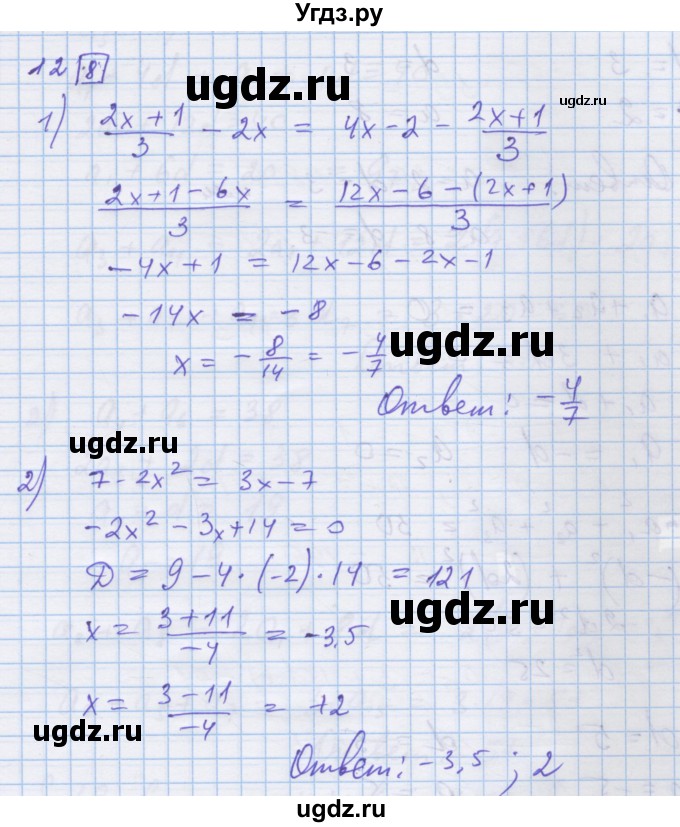 Угдз.ру
12 |8|
ugdz.ru
ugdz.ru
1) (2x+1)/3 - 2x = 4x-2 - (2x+1)/3
(2x+1-6x)/3 = (12x-6-(2x+1))/3
-4x+1 = 12x-6-2x-1
-14x = -8
x = -8/14 = -4/7
ugdz.ru
Ответ: -4/7
ugdz.ru
2) 7-2x² = 3x-7
-2x²-3x+14=0
D = 9-4·(-2)·14 = 121
ugdz.ru
x = (3+11)/-4 = -3,5
x = (3-11)/-4 = +2
ugdz.ru
Ответ: -3,5 ; 2
ugdz.ru